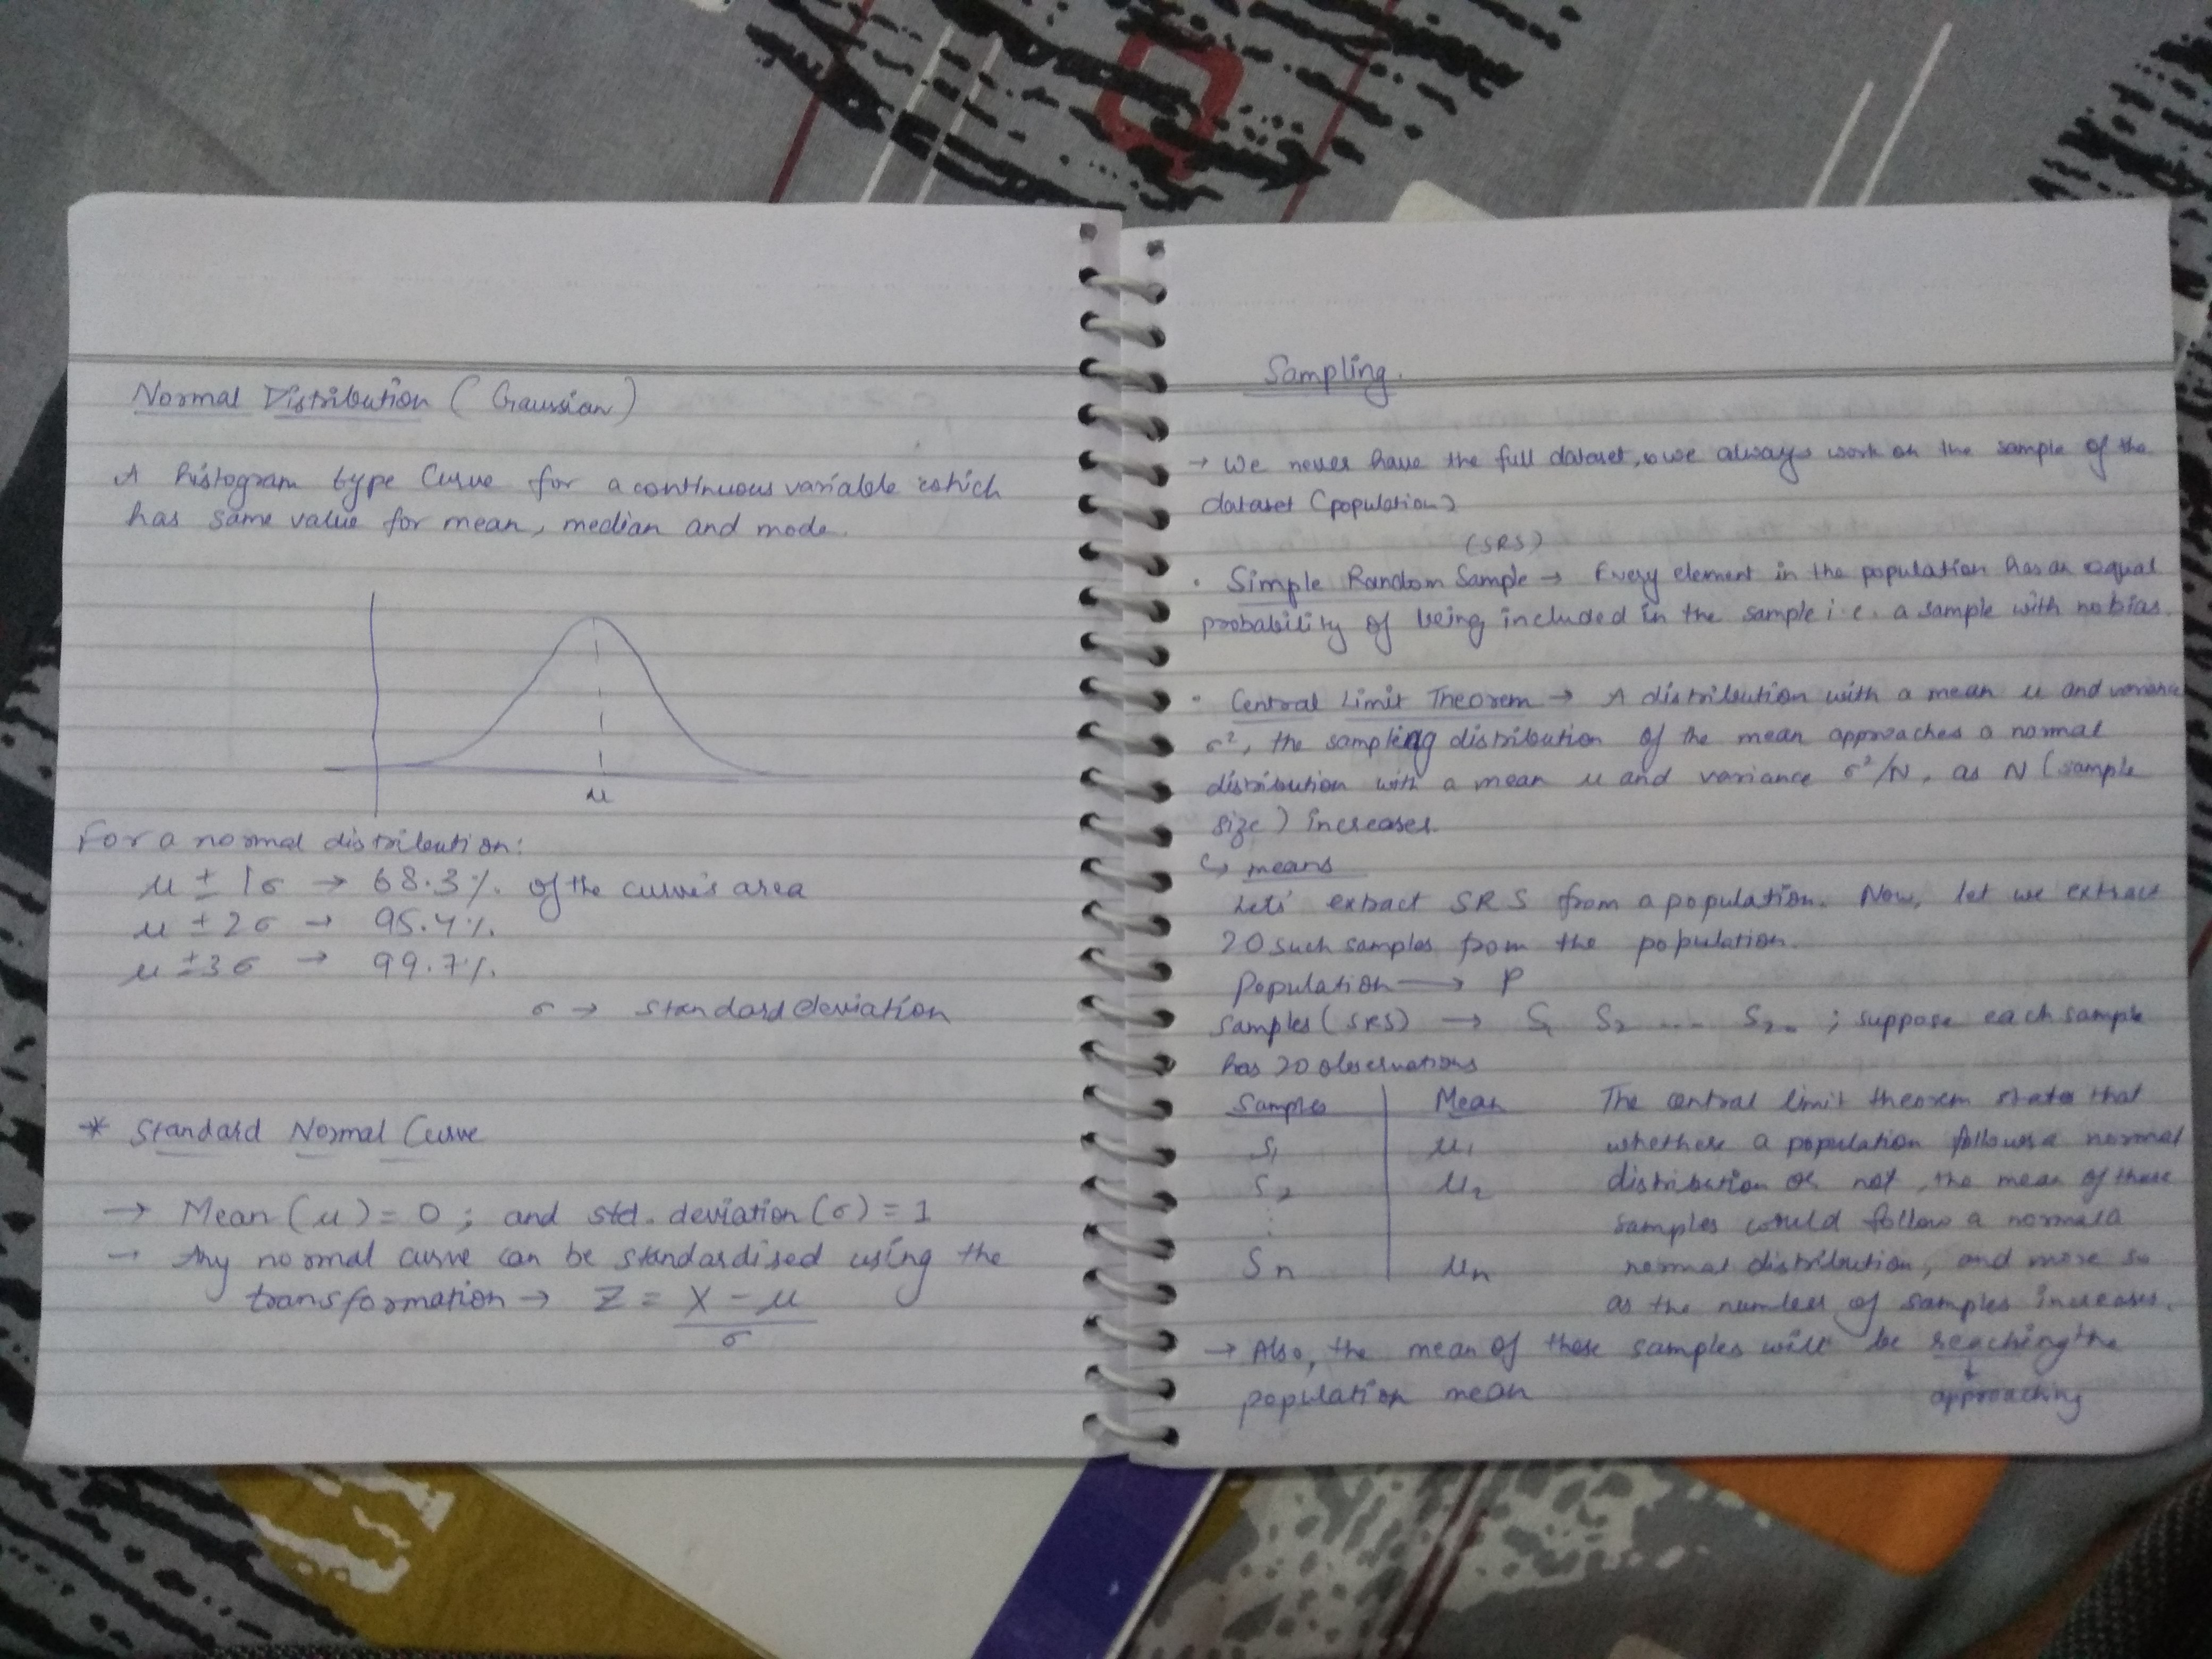 Normal Distribution (Gaussian)
A histogram type curve for a continuous variable which
has same value for mean, median and mode.
μ
For a normal distribution:
μ ± 1σ → 68.3%. of the curve's area
μ ± 2σ → 95.4%.
μ ± 3σ → 99.7%.
σ → standard deviation
* Standard Normal Curve
→ Mean (μ) = 0 ; and std. deviation (σ) = 1
→ Any normal curve can be standardised using the
transformation → Z = X - μ
σ
Sampling.
→ We never have the full dataset, we always work on the sample of the
dataset (population)
(SRS)
· Simple Random Sample → Every element in the population has an equal
probability of being included in the sample i.e. a sample with no bias.
· Central Limit Theorem → A distribution with a mean μ and variance
σ², the sampling distribution of the mean approaches a normal
distribution with a mean μ and variance σ²/N, as N (sample
size) increases.
↳ means
Let's extract SRS from a population. Now, let we extract
20 such samples from the population.
Population → P
Samples (SRS) → S1 S2 .... S20 ; suppose each sample
has 20 observations
Samples Mean
S1 μ1
S2 μ2
⋮
Sn μn
The central limit theorem states that
whethere a population follows a normal
distribution or not, the mean of these
samples would follow a normal a
normal distribution, and more so
as the number of samples increases.
→ Also, the mean of these samples will be reaching the
population mean
↓
approaching